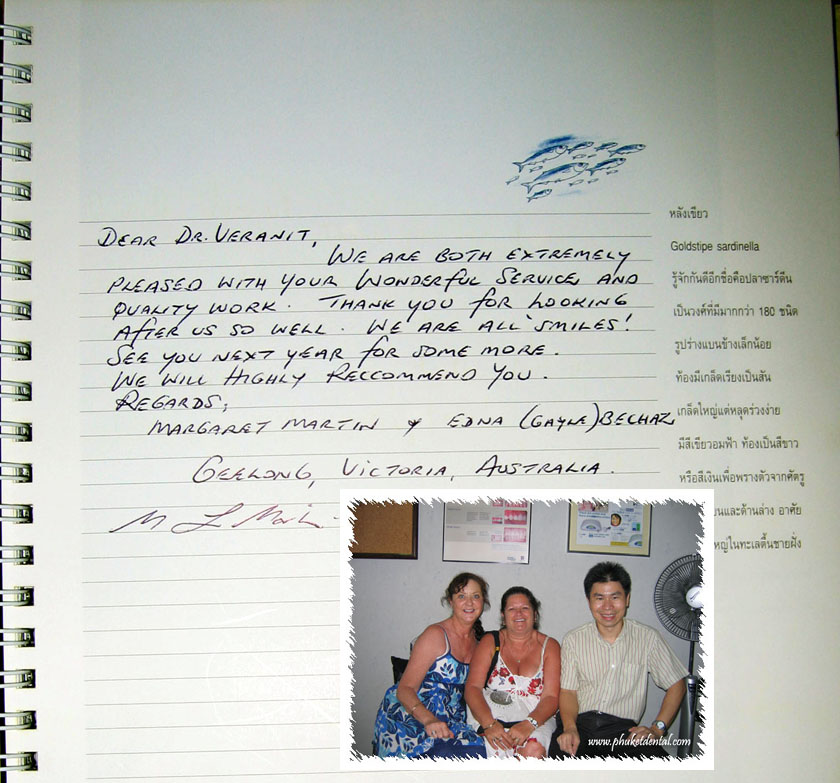 DEAR DR. VERANIT,
WE ARE BOTH EXTREMELY
PLEASED WITH YOUR WONDERFUL SERVICE, AND
QUALITY WORK. THANK YOU FOR LOOKING
AFTER US SO WELL. WE ARE ALL `SMILES!
SEE YOU NEXT YEAR FOR SOME MORE.
WE WILL HIGHLY RECCOMMEND YOU.
REGARDS,
MARGARET MARTIN & EDNA (GAYLE) BECHAZ
GEELONG, VICTORIA, AUSTRALIA.
M L Martin
หลังเขียว
Goldstipe sardinella
รู้จักกันดีอีกชื่อคือปลาซาร์ดีน
เป็นวงศ์ที่มีมากกว่า 180 ชนิด
รูปร่างแบนข้างเล็กน้อย
ท้องมีเกล็ดเรียงเป็นสัน
เกล็ดใหญ่แต่หลุดร่วงง่าย
มีสีเขียวอมฟ้า ท้องเป็นสีขาว
หรือสีเงินเพื่อพรางตัวจากศัตรู
นและด้านล่าง อาศัย
หญ่ในทะเลตื้นชายฝั่ง
www.phuketdental.com